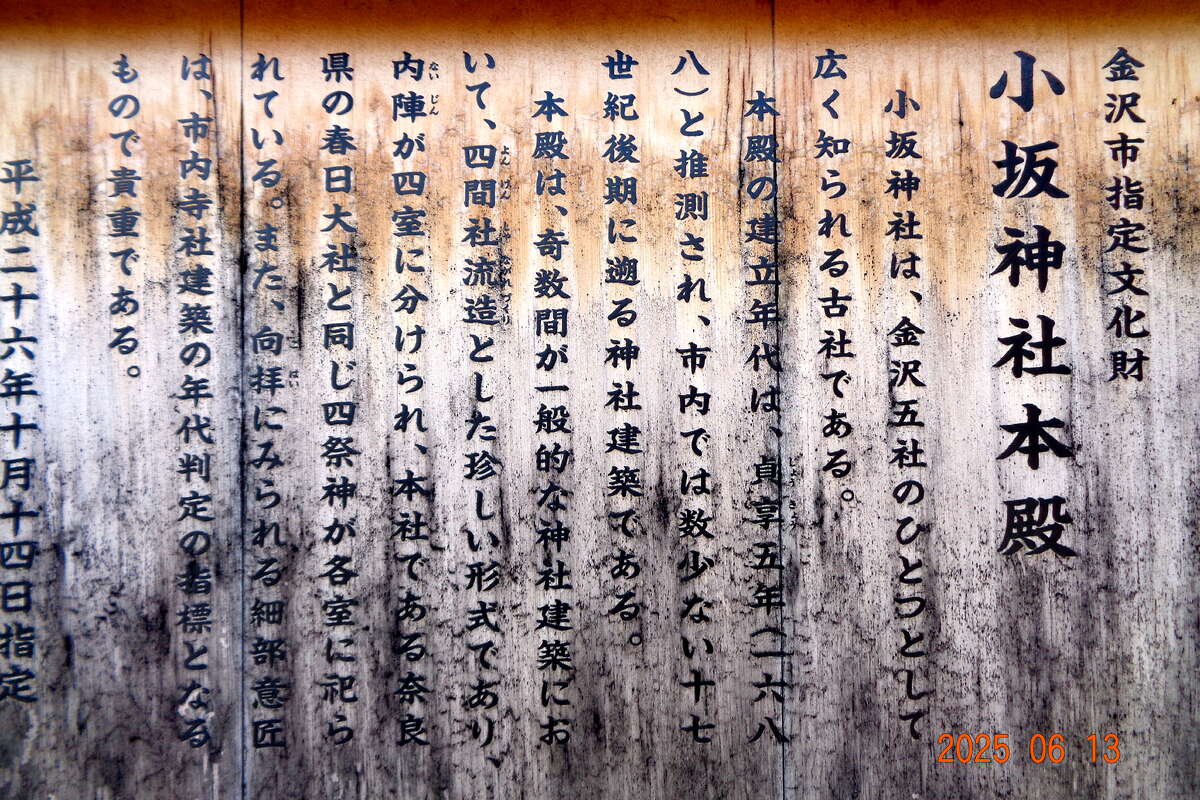 金沢市指定文化財
小坂神社本殿
小坂神社は、金沢五社のひとつとして
広く知られる古社である。
本殿の建立年代は、貞享五年（一六八
八）と推測され、市内では数少ない十七
世紀後期に遡る神社建築である。
本殿は、奇数間が一般的な神社建築にお
いて、四間社流造とした珍しい形式であり、
内陣が四室に分けられ、本社である奈良
県の春日大社と同じ四祭神が各室に祀ら
れている。また、向拝にみられる細部意匠
は、市内寺社建築の年代判定の指標となる
もので貴重である。
平成二十六年十月十四日指定
2025 06 13